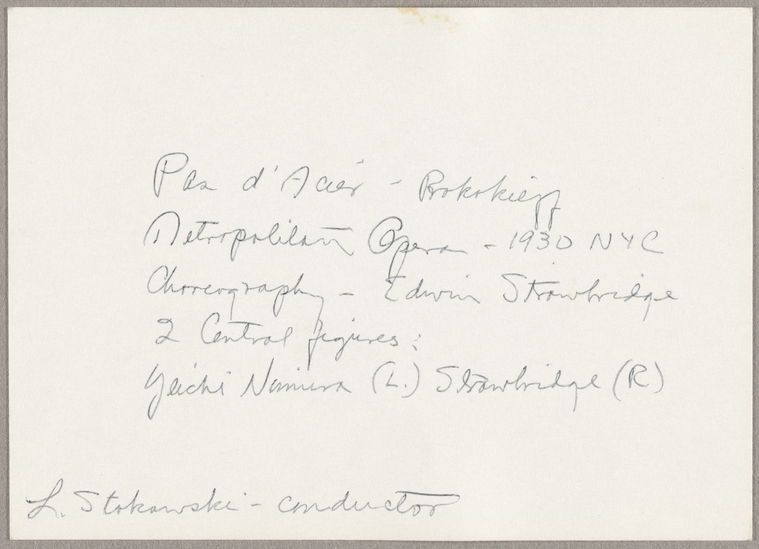 Pas d'Acier - Prokokieff
Metropolitan Opera - 1930 NYC
Choreography - Edwin Strawbridge
2 Central figures:
Yeichi Nimura (L.) Strawbridge (R)
L. Stokowski - conductor